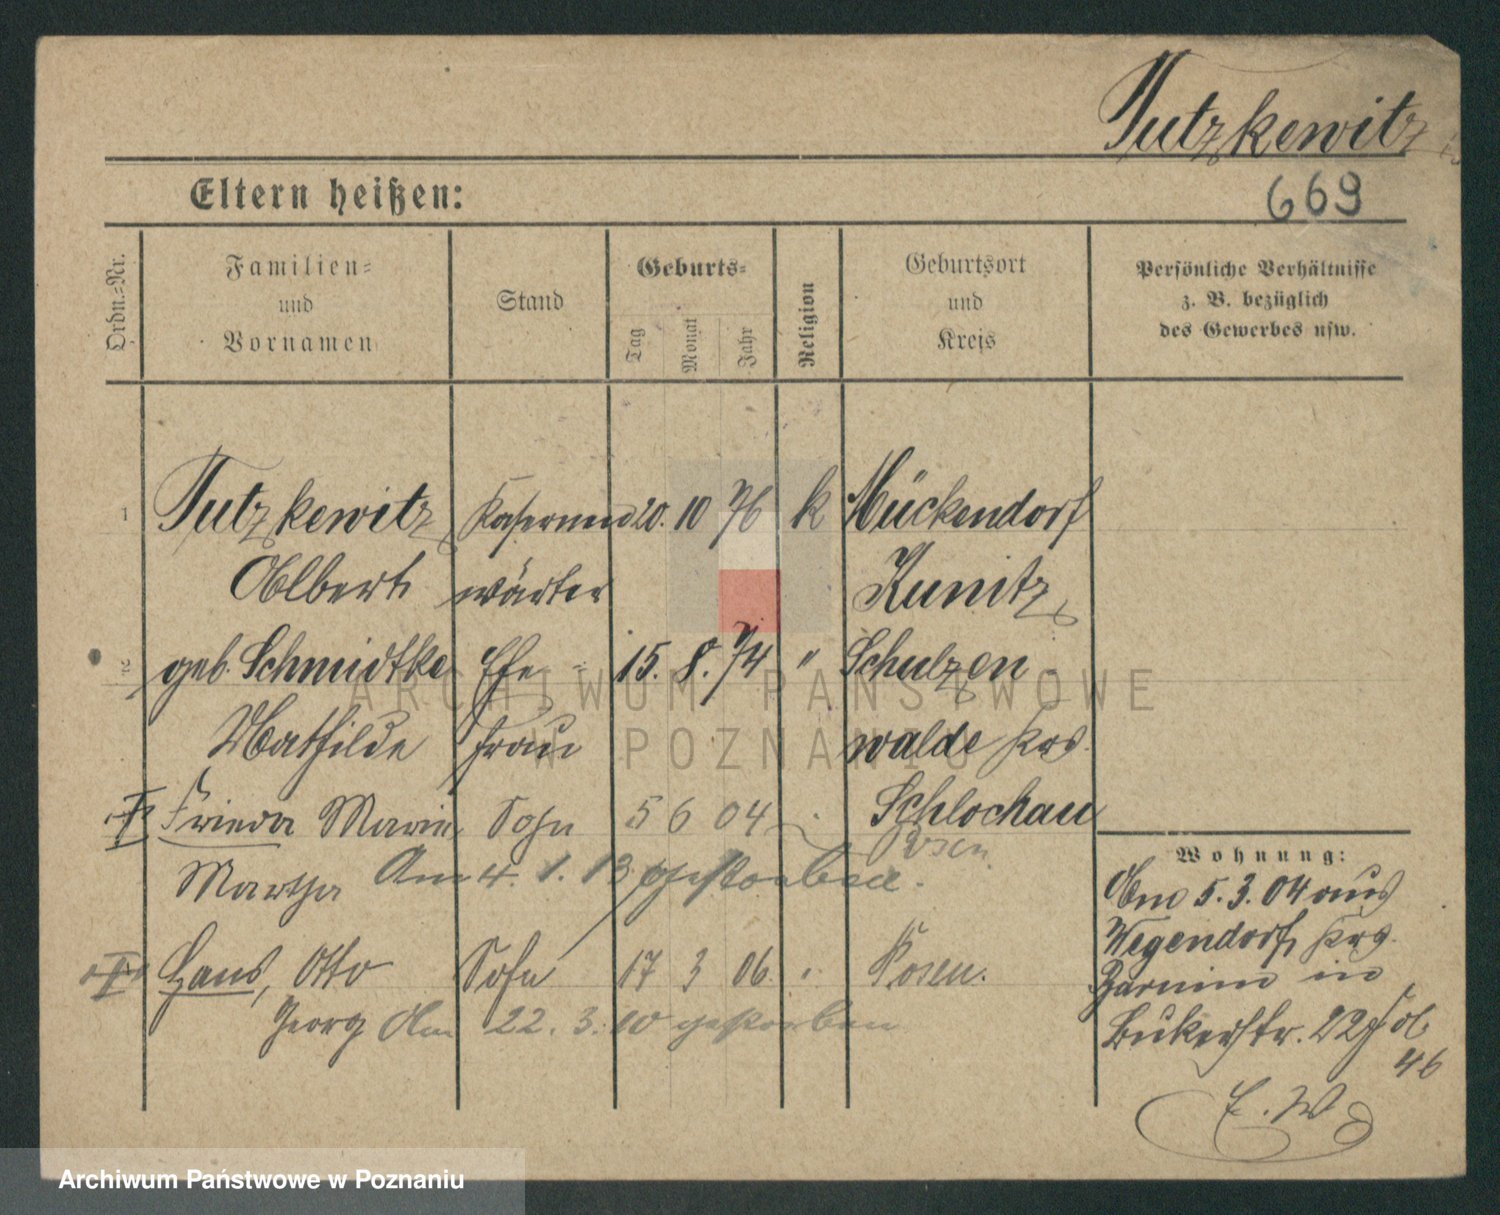 Tutzkewitz
Eltern heißen:
669
Ordn.=Nr.
Familien=
und
Vornamen
Stand
Geburts=
Tag
Monat
Jahr
Religion
Geburtsort
und
Kreis
Persönliche Verhältnisse
z. B. bezüglich
des Gewerbes usw.
1 Tutzkewitz Kasernen 20. 10 76 k Mückendorf
Albert wärter Kunitz
2 geb. Schmidtke Ehe= 15. 8. 74 " Schulzen
Mathilde frau walde Krs.
Frieda Marie 5 6 04 Schlochau
Posen
Martha Am 4. 1. 13 gestorben.
Hans, Otto Sohn 17 3 06 " Posen.
Georg Am 22. 3. 10 gestorben
Wohnung:
Am 5. 3. 04 aus
Wegendorf Krs.
Barnim in
Bukerstr. 22
46
E. W
ARCHIWUM PAŃSTWOWE
W POZNANIU
Archiwum Państwowe w Poznaniu